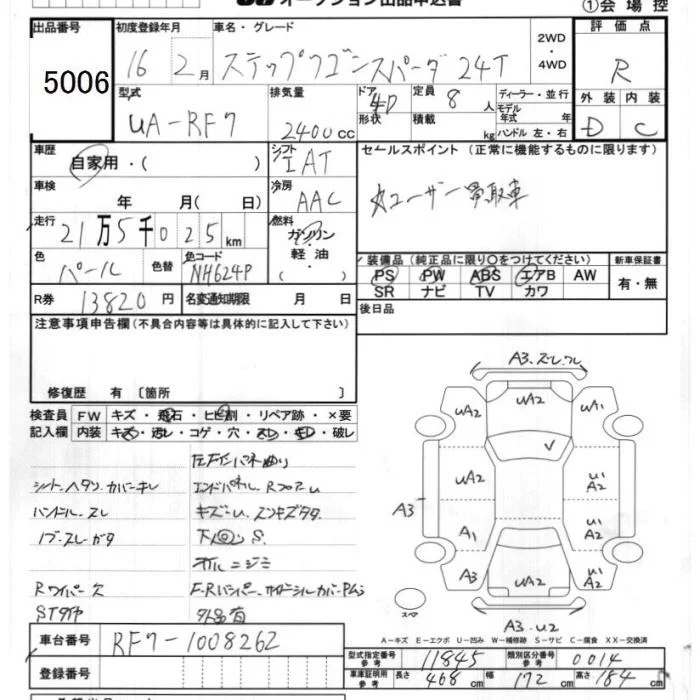 オークション出品申込書 ①会場控
出品番号 初度登録年月 車名・グレード 2WD・4WD 評価点
5006 16 2月 ステップワゴンスパーダ 24T R
型式 排気量 ドア形状 4D 定員 8人 積載 kg ディーラー・並行 モデル年式 年式 ハンドル 左・右 外装 内装
UA-RF7 2400cc D C
車歴 自家用・( ) シフト IAT セールスポイント (正常に機能するものに限ります)
車検 年 月( 日) 冷房 AAC 大ユーザー買取車
走行 21万5千025km 燃料 ガソリン・軽油・( )
色 パール 色替 色コード NH624P 装備品 (純正品に限り○をつけてください) 新車保証書
PS PW ABS エアB AW 有・無
SR ナビ TV カワ
R券 13820円 名変通知期限 月 日 後日品
注意事項申告欄(不具合内容等は具体的に記入して下さい)
修復歴 有 〔箇所 〕
検査員記入欄 FW キズ・飛石・ヒビ割・リペア跡・×要
内装 キズ・汚レ・コゲ・穴・スレ・キレ・破レ
シート、ヘタリ、カバーキレ エンドパネル、
ハンドル、スレ キズ-u、
ノブ、スレ 下回りS、
オイルニジミ
Rワイパー欠 F-Rバンパー、
外品有
A3、ズレ、ワレ
UA2 UA2 UA1
UA2 U1 A2
A3 A1 U1 A2
A3 UA2 U1 A2
スペア A3、U2
A-キズ E-エクボ U-凹み W-補修跡 S-サビ C-腐食 XX-交換済
車台番号 RF7-1008262 型式指定番号 参考 11845 類別区分番号 参考 0014
登録番号 車庫証明用 参考 長さ 468cm 幅 172cm 高さ 184cm